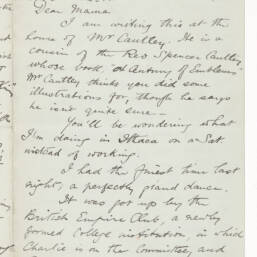 Dear Mama
I am writing this at the
home of Mr Cautley. He is a
cousin of the Rev Spencer Cautley,
whose book, "A of Emblems
Mr Cautley thinks you did some
illustrations for, though he says
he isn't quite sure —
You'll be wondering what
I'm doing in Ithaca on a Sat.
instead of working.
I had the finest time last
night, a perfectly grand dance.
It was got up by the
British Empire Club, a newly
formed College institution, in which
Charlie is on the Committee, and